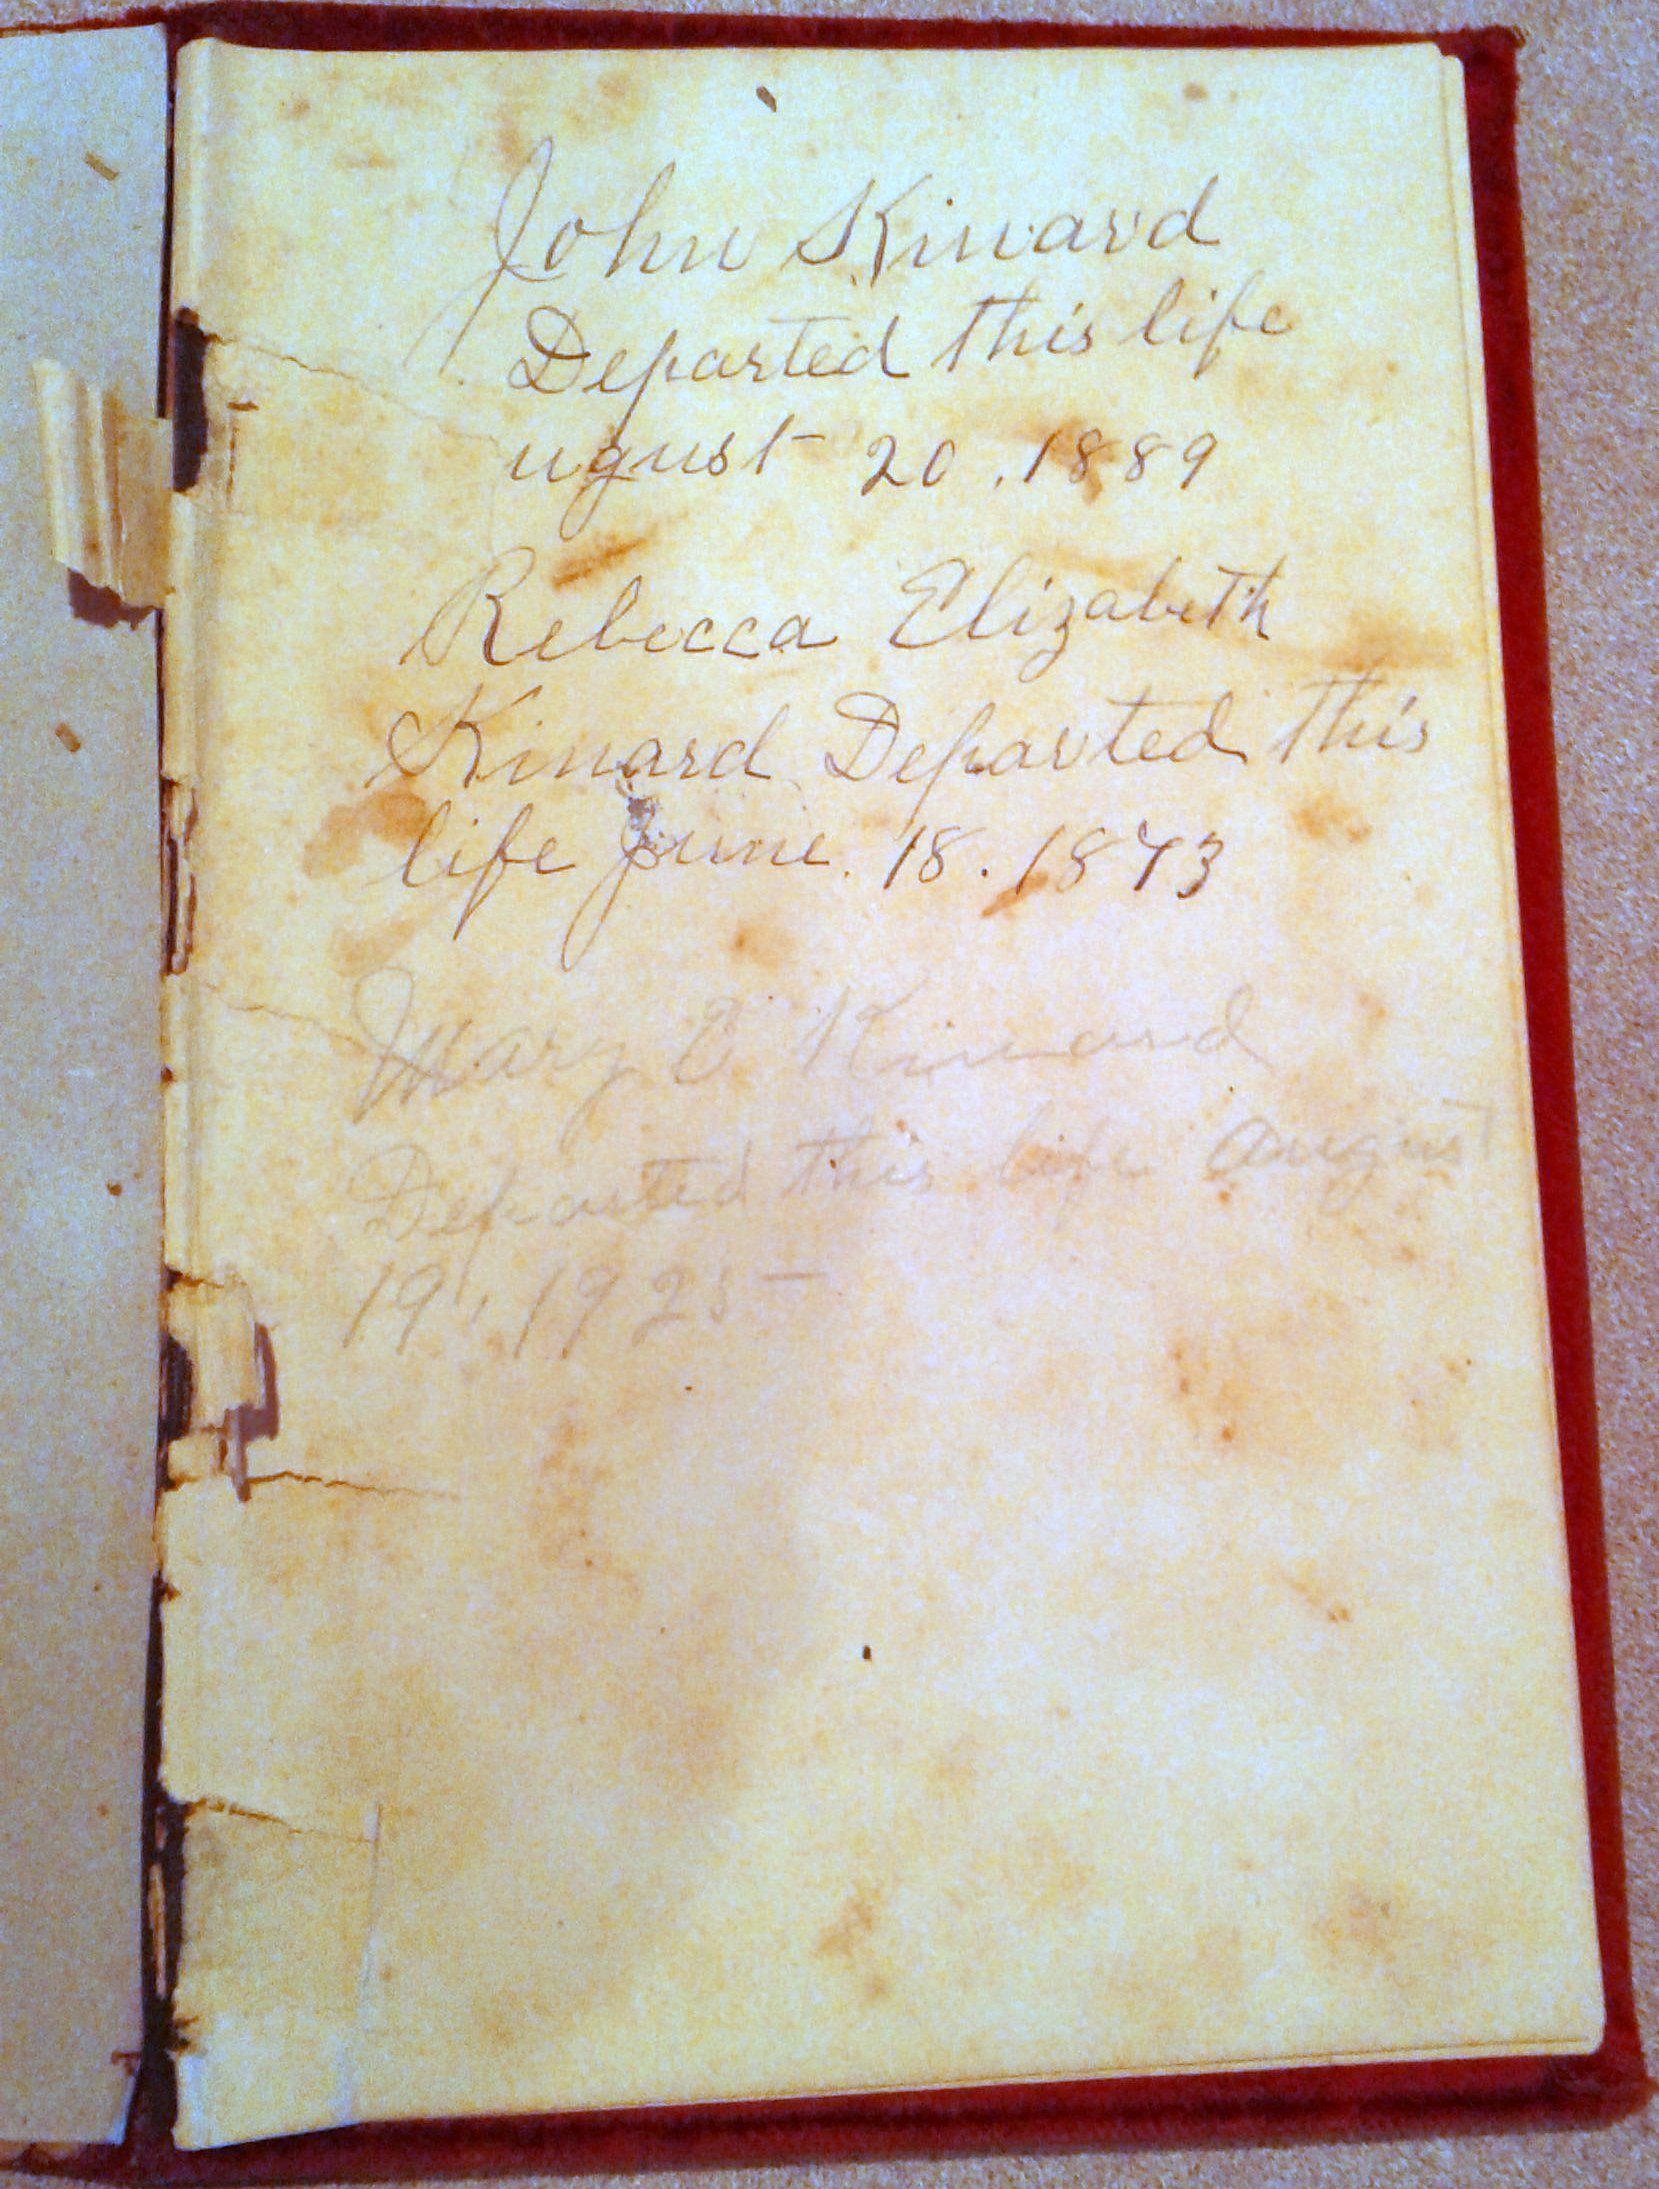 John Kinard
Departed this life
ugust 20. 1889
Rebecca Elizabeth
Kinard Departed this
life June 18. 1873
Mary E Kinard
Departed this life August
19, 1925